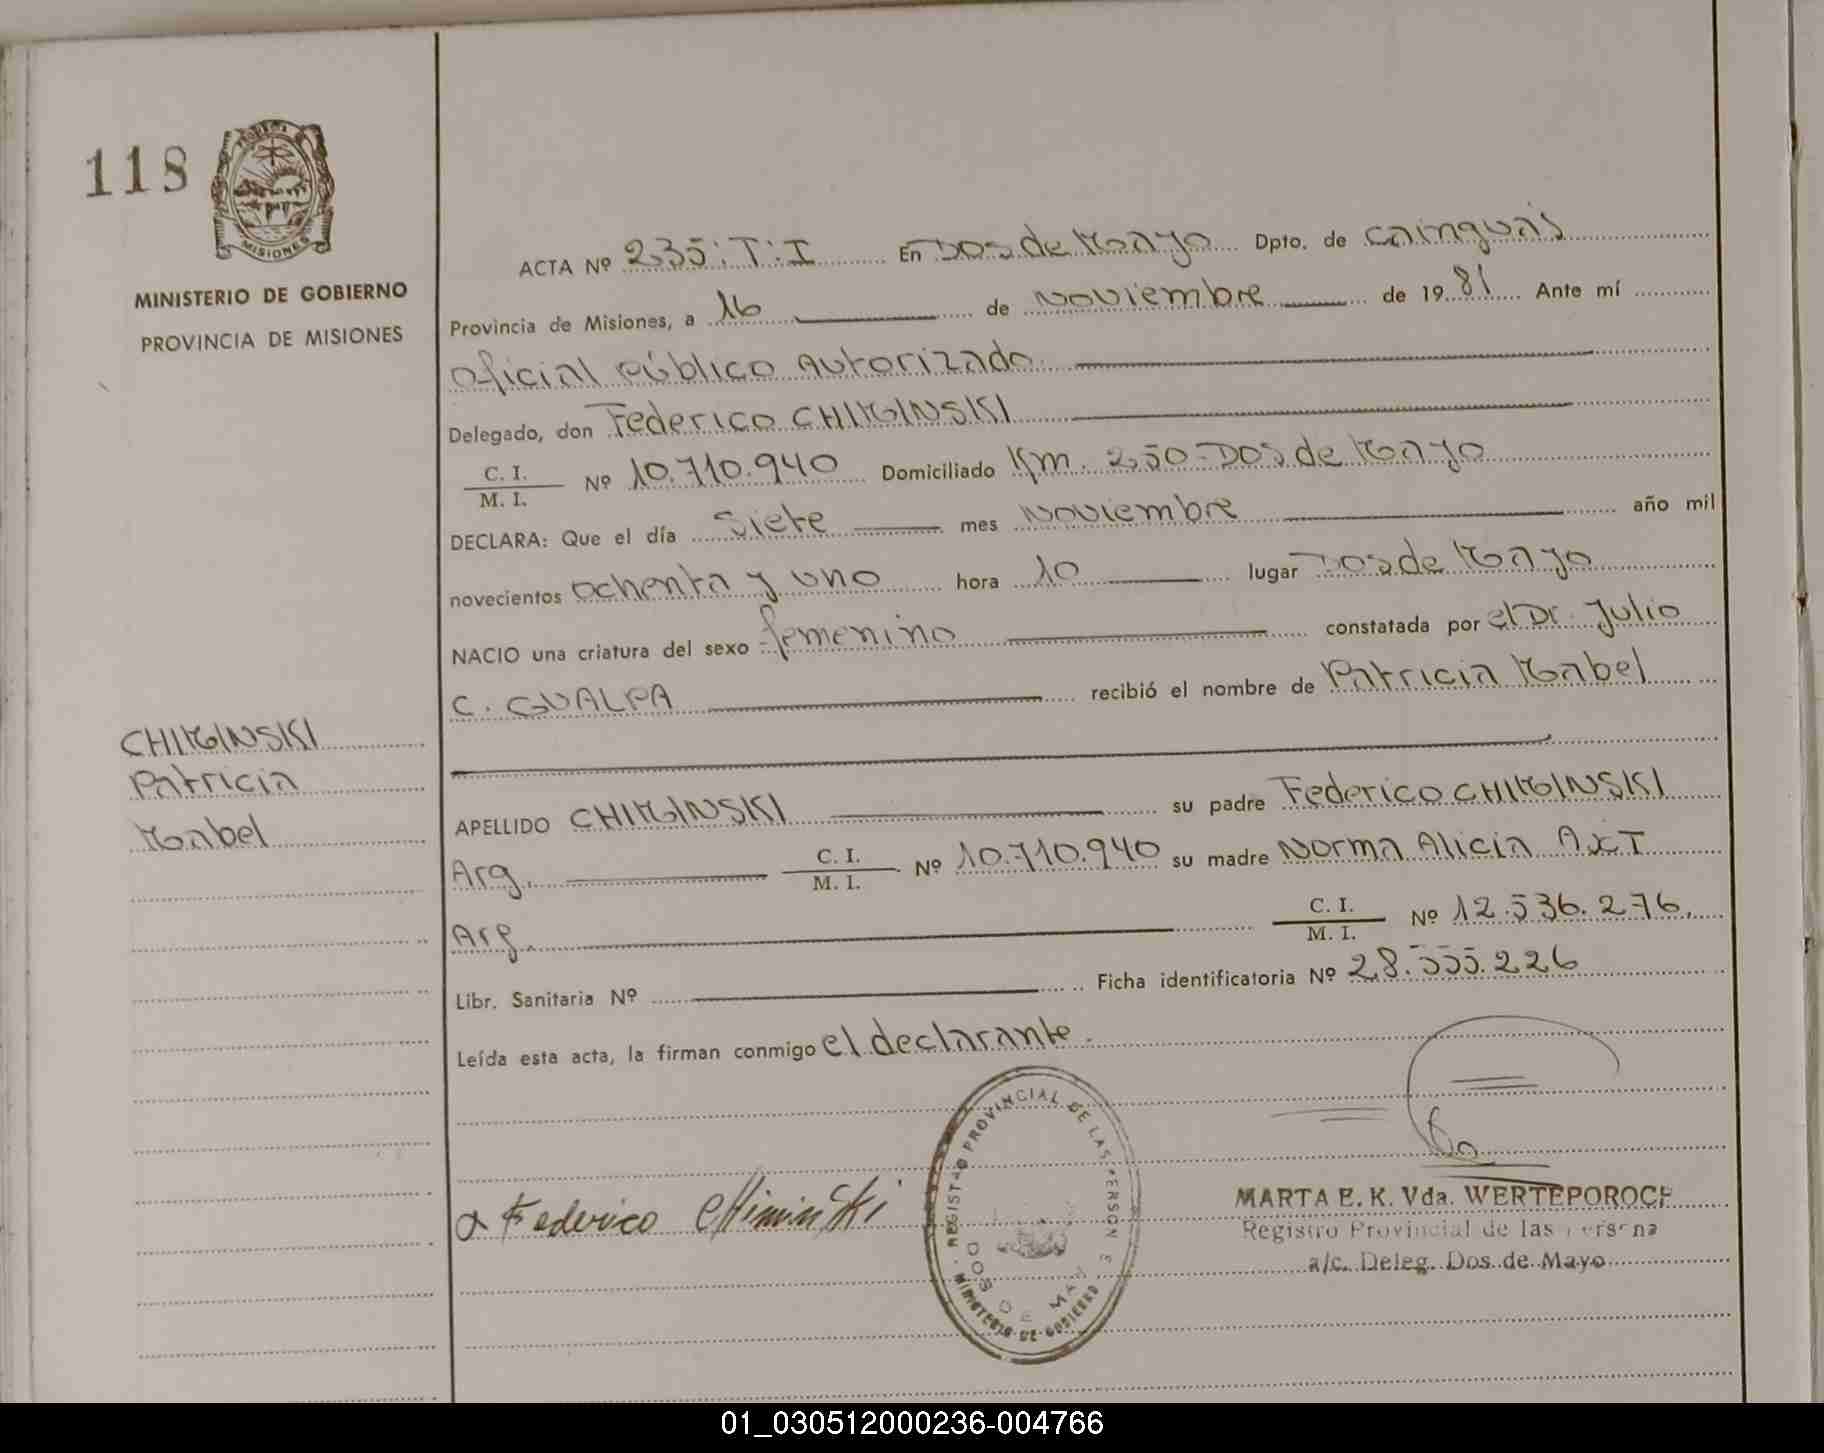 118
MISIONES
MINISTERIO DE GOBIERNO
PROVINCIA DE MISIONES
ACTA Nº 235:T:I En Dos de Mayo Dpto. de Cainguás
Provincia de Misiones, a 16 de Noviembre de 1981 Ante mí
Oficial Público Autorizado.
Delegado, don Federico CHIMINSKI
C. I.
M. I. Nº 10.710.940 Domiciliado Km. 250-Dos de Mayo
DECLARA: Que el día Siete mes Noviembre año mil
novecientos ochenta y uno hora 10 lugar Dos de Mayo
NACIO una criatura del sexo femenino constatada por el Dr. Julio
C. GUALPA recibió el nombre de Patricia Mabel
CHIMINSKI
Patricia
Mabel
APELLIDO CHIMINSKI su padre Federico CHIMINSKI
Arg. C. I.
M. I. Nº 10.710.940 su madre Norma Alicia AXT
Arg. C. I.
M. I. Nº 12.536.276.
Libr. Sanitaria Nº Ficha identificatoria Nº 28.555.226
Leída esta acta, la firman conmigo el declarante.
Federico Chiminski
REGISTRO PROVINCIAL DE LAS PERSONAS
DOS DE MAYO
MINISTERIO DE GOBIERNO
MARTA E. K. Vda. WERTEPOROCH
Registro Provincial de las Persona
a/c. Deleg. Dos de Mayo
01_030512000236-004766